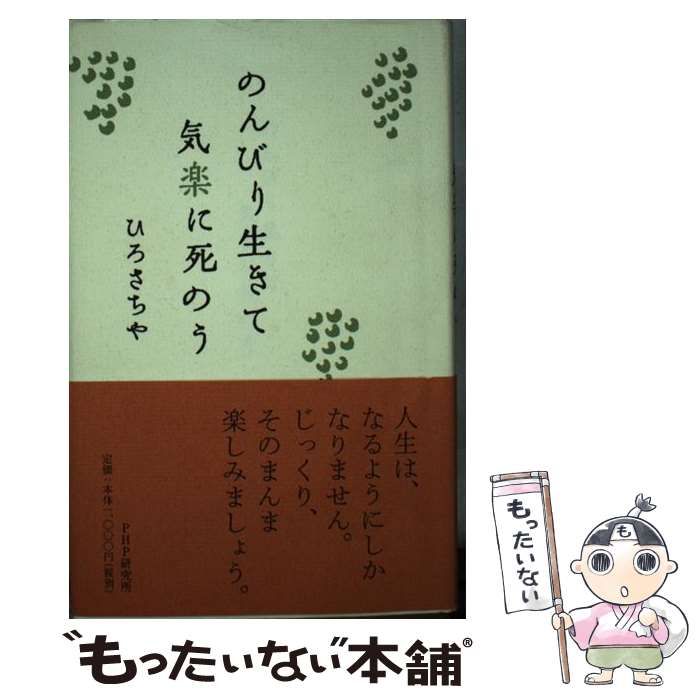 のんびり生きて
気楽に死のう
ひろさちや
人生は、
なるようにしか
なりません。
じっくり、
そのまんま
楽しみましょう。
PHP研究所
定価：本体一、〇〇〇円（税別）
も
もったいない
“もったいない本舗®